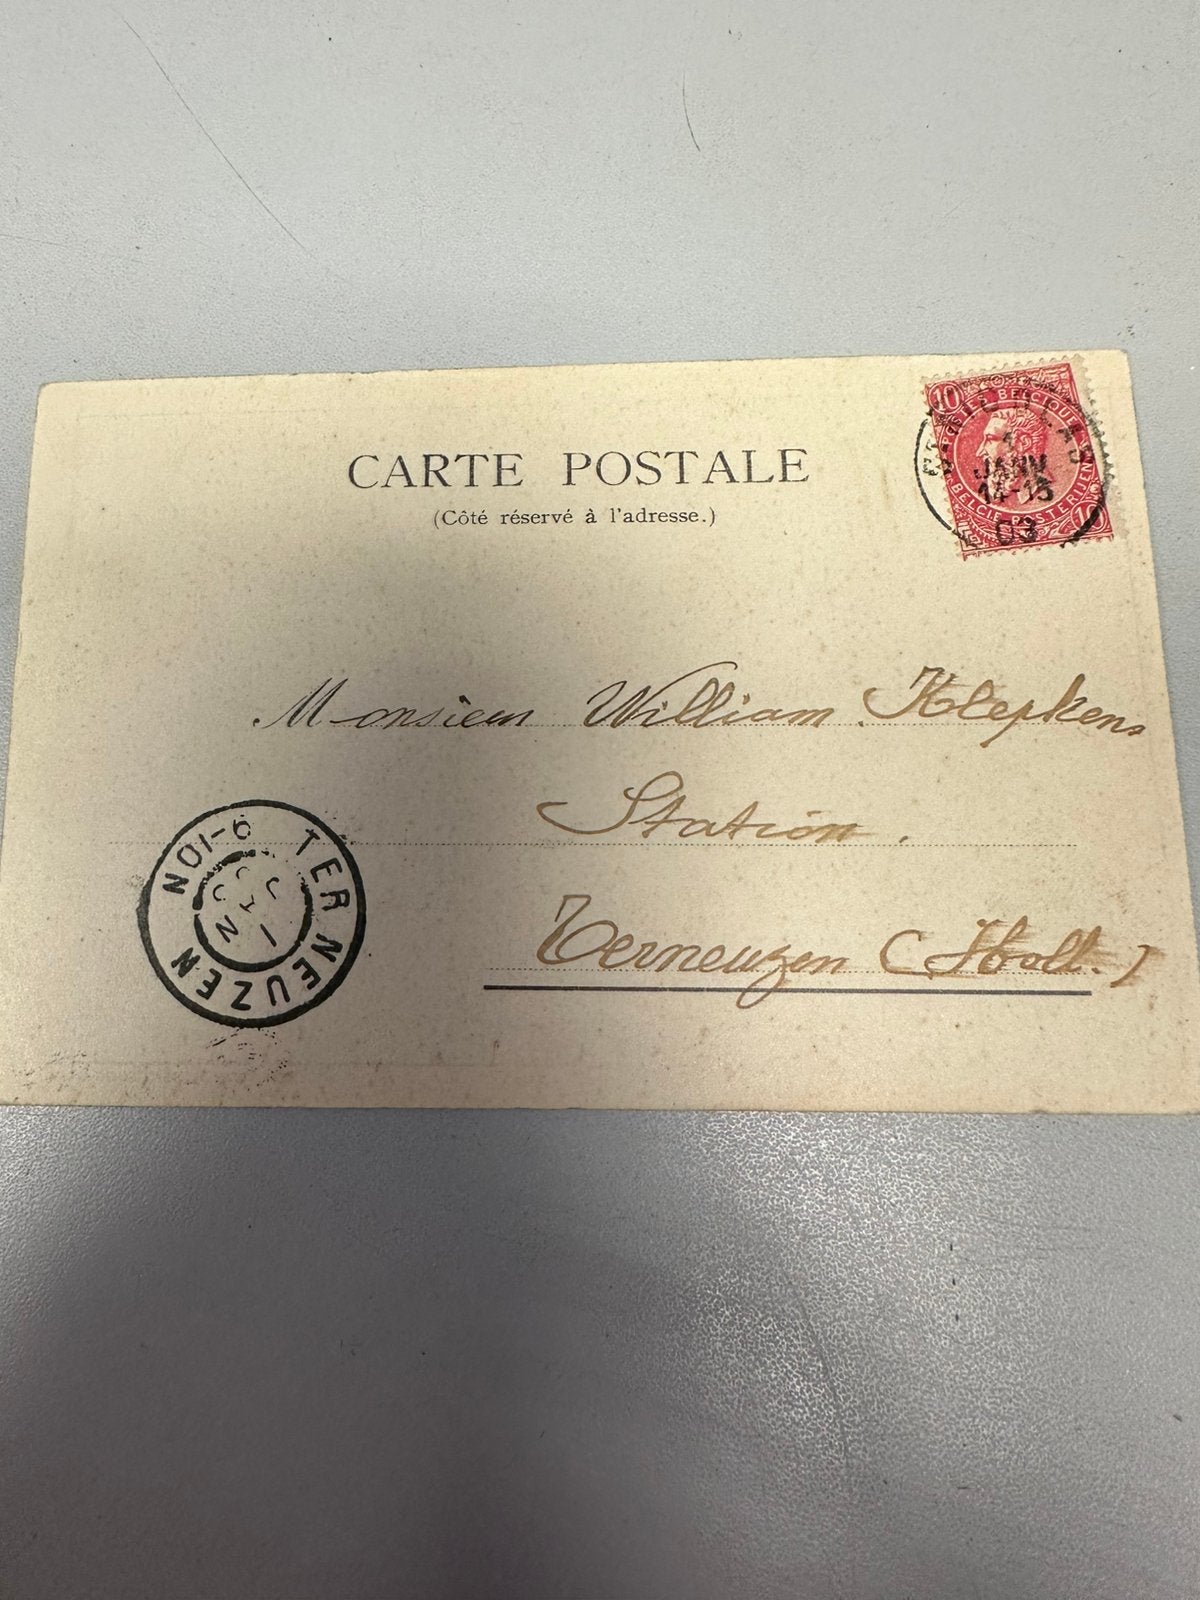 CARTE POSTALE
(Côté réservé à l'adresse.)
10
POSTES BELGIQUE
BELGIE POSTERIJEN
10
ST NICOLAS
1
JANV
14-15
03
Monsieur William Klepkens
Station.
Terneuzen (Holl.)
TER NEUZEN
1 JAN 03